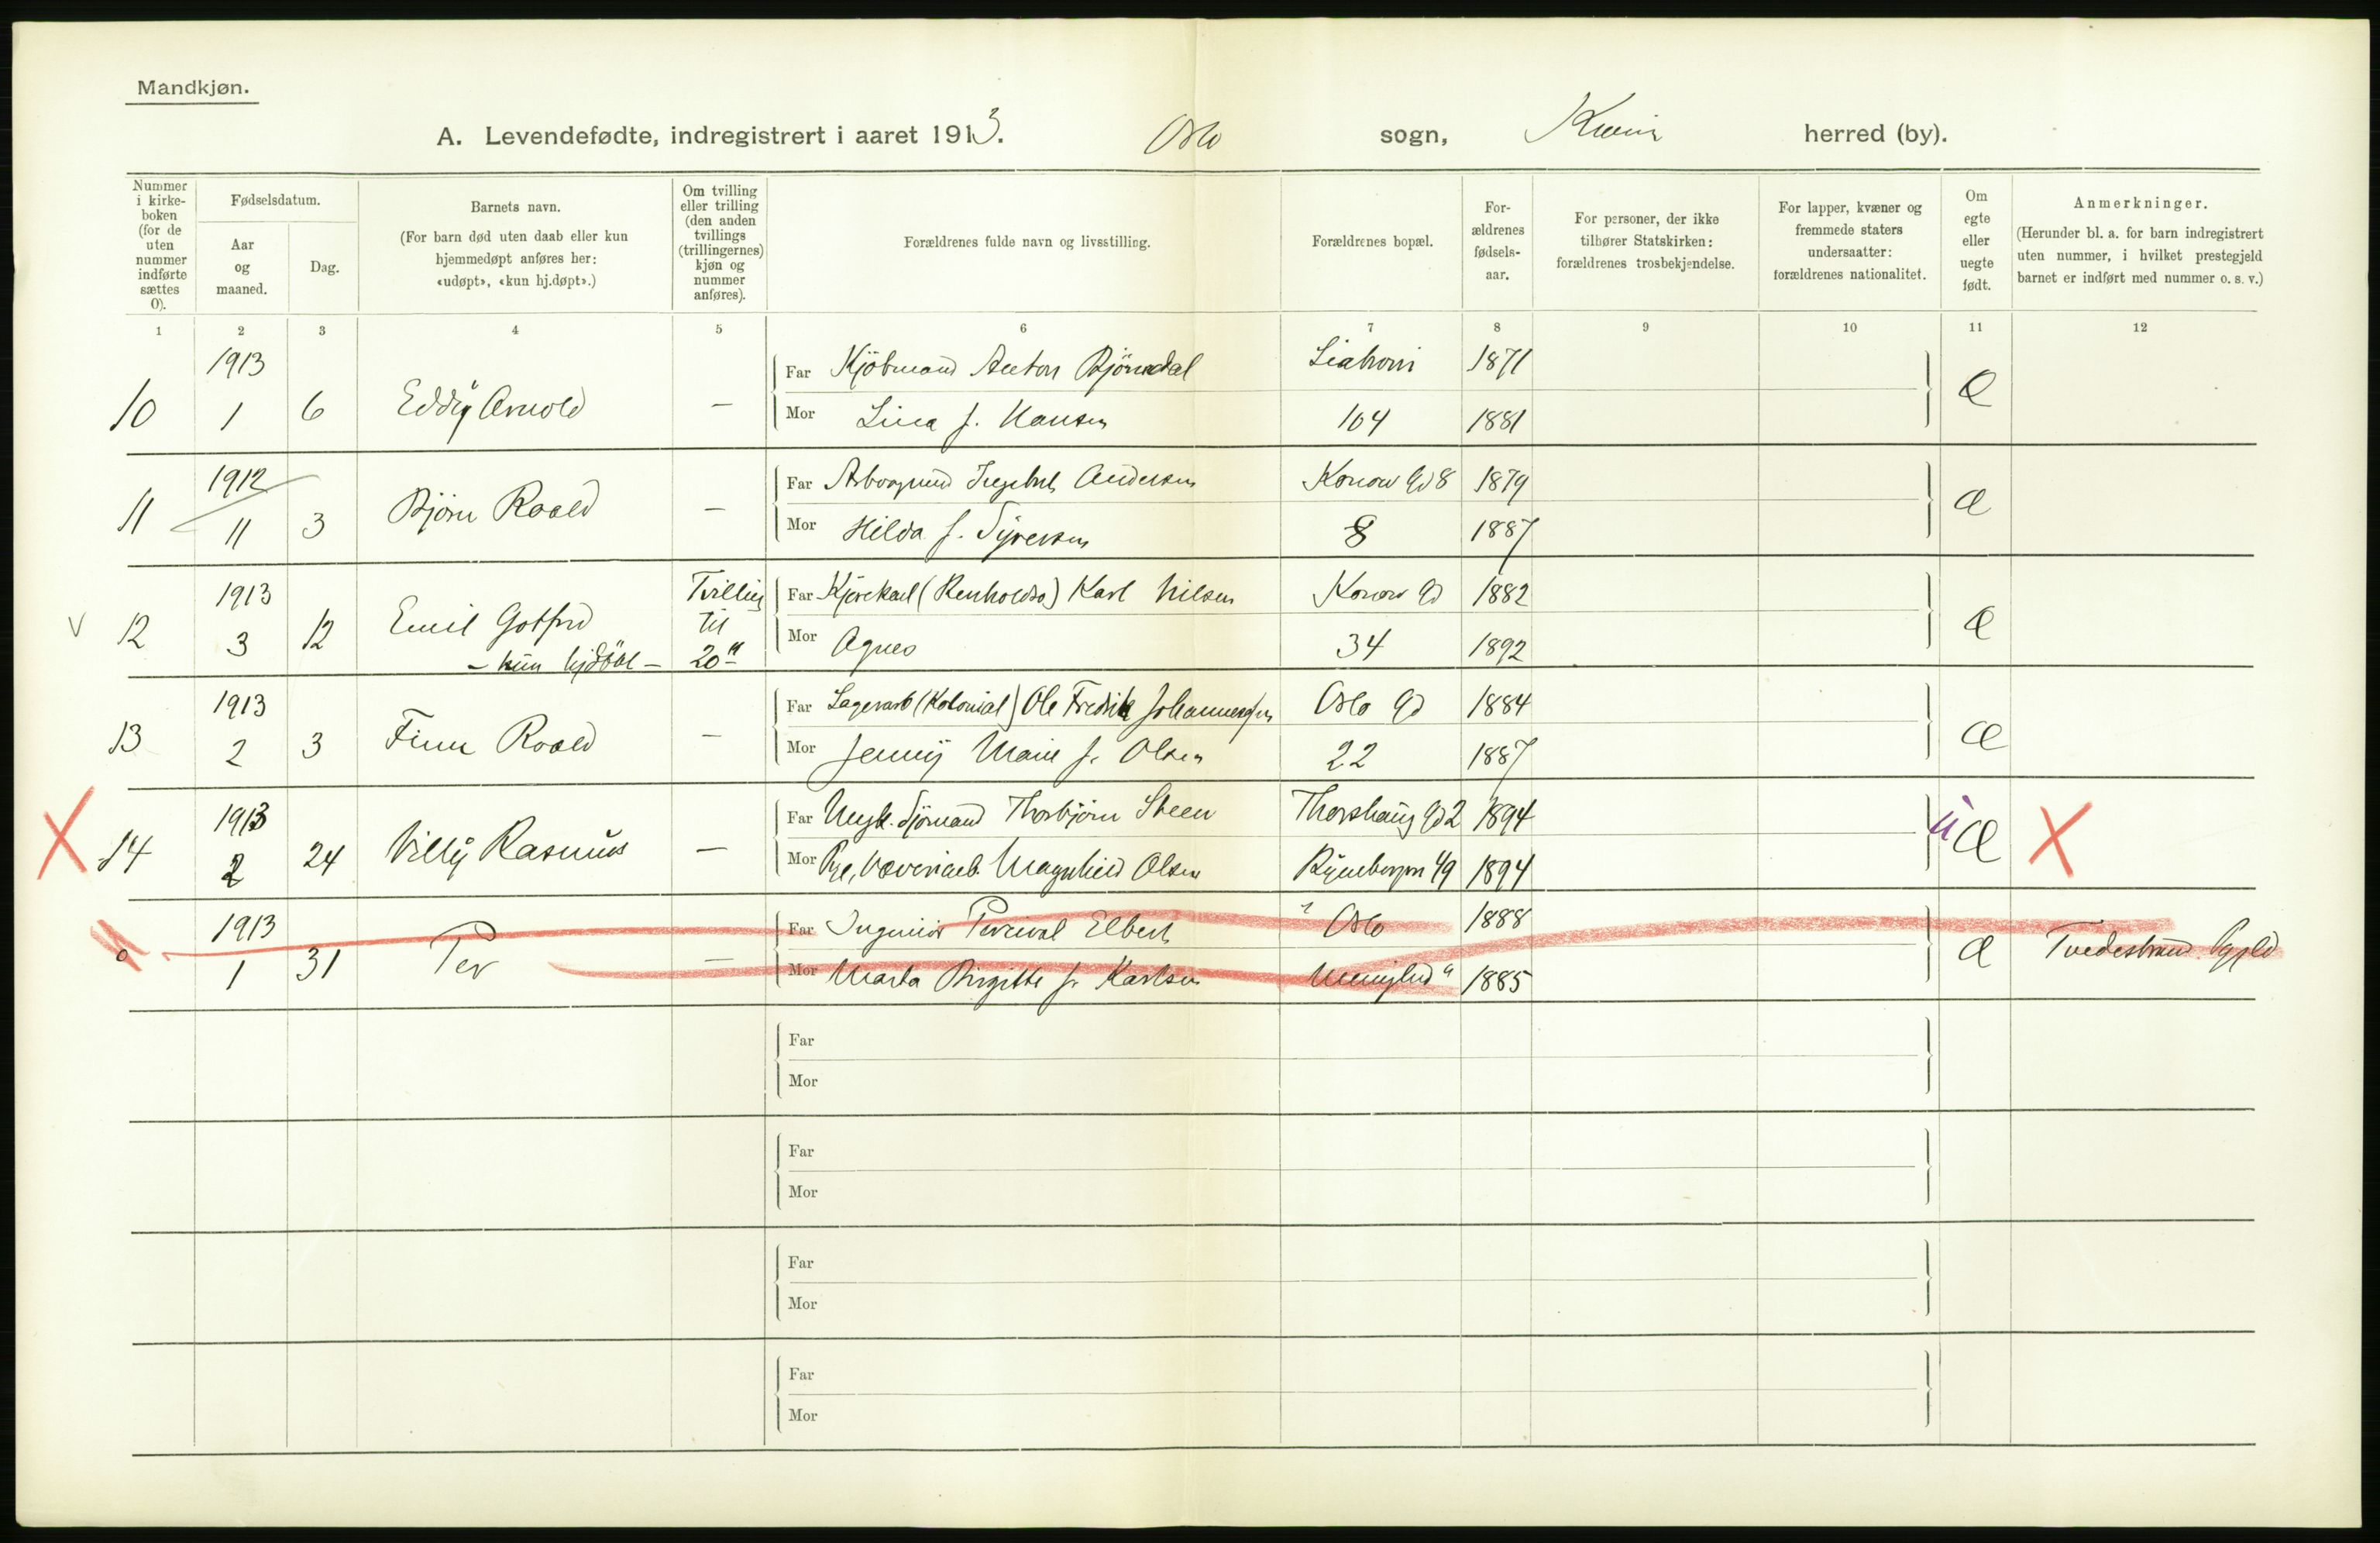 Mandkjøn.
A. Levendefødte, indregistrert i aaret 1913. Oslo sogn, Kra herred (by).
Nummer i kirke- boken (for de uten nummer indførte sættes 0).
Fødselsdatum.
Aar og maaned.
Dag.
Barnets navn.
(For barn død uten daab eller kun hjemmedøpt anføres her: «udøpt», «kun hj.døpt».)
Om tvilling eller trilling (den anden tvillings (trillingernes) kjøn og nummer anføres).
Forældrenes fulde navn og livsstilling.
Forældrenes bopæl.
For- ældrenes fødsels- aar.
For personer, der ikke tilhører Statskirken: forældrenes trosbekjendelse.
For lapper, kvæner og fremmede staters undersaatter: forældrenes nationalitet.
Om egte eller uegte født.
Anmerkninger.
(Herunder bl. a. for barn indregistrert uten nummer, i hvilket prestegjeld barnet er indført med nummer o. s. v.)
1 2 3 4 5 6 7 8 9 10 11 12
1913 Far Kjöbmand Anton Björndal 1871
10 1 6 Eddy Arnold — Mor Lina f. Hansen 104 1881 Æ
1912 Far Andersen Konow Gd 8 1879
11 11 3 Bjørn Roald — Mor Hilda f. Syversen 8 1887 Æ
1913 Tvilling Far Kjørekarl (Renholdsv) Karl Nilsen Konow Gd 1882
V 12 3 12 Emil Gotfred til Mor Agnes 34 1892 Æ
— kun hjdöbt — 20"
1913 Far Lagerarb (Kolonial) Ole Fredrik Johannessen Oslo Gd 1884
13 2 3 Finn Roald — Mor Jenny Marie f. Olsen 22 1887 Æ
1913 Far Ungk. Sjömand Thorbjørn Steen Thorshaug Gd 2 1894
X 14 2 24 Villy Rasmus — Mor Pge, Væveriarb. Magnhild Olsen 49 1894 u Æ X
1913 Far Ingeniör Percival Elbert Oslo 1888
0 1 31 Per — Mor Marta Birgitte f. Karlsen 1885 Æ Tvedestrand Pgjld
Far
Mor
Far
Mor
Far
Mor
Far
Mor